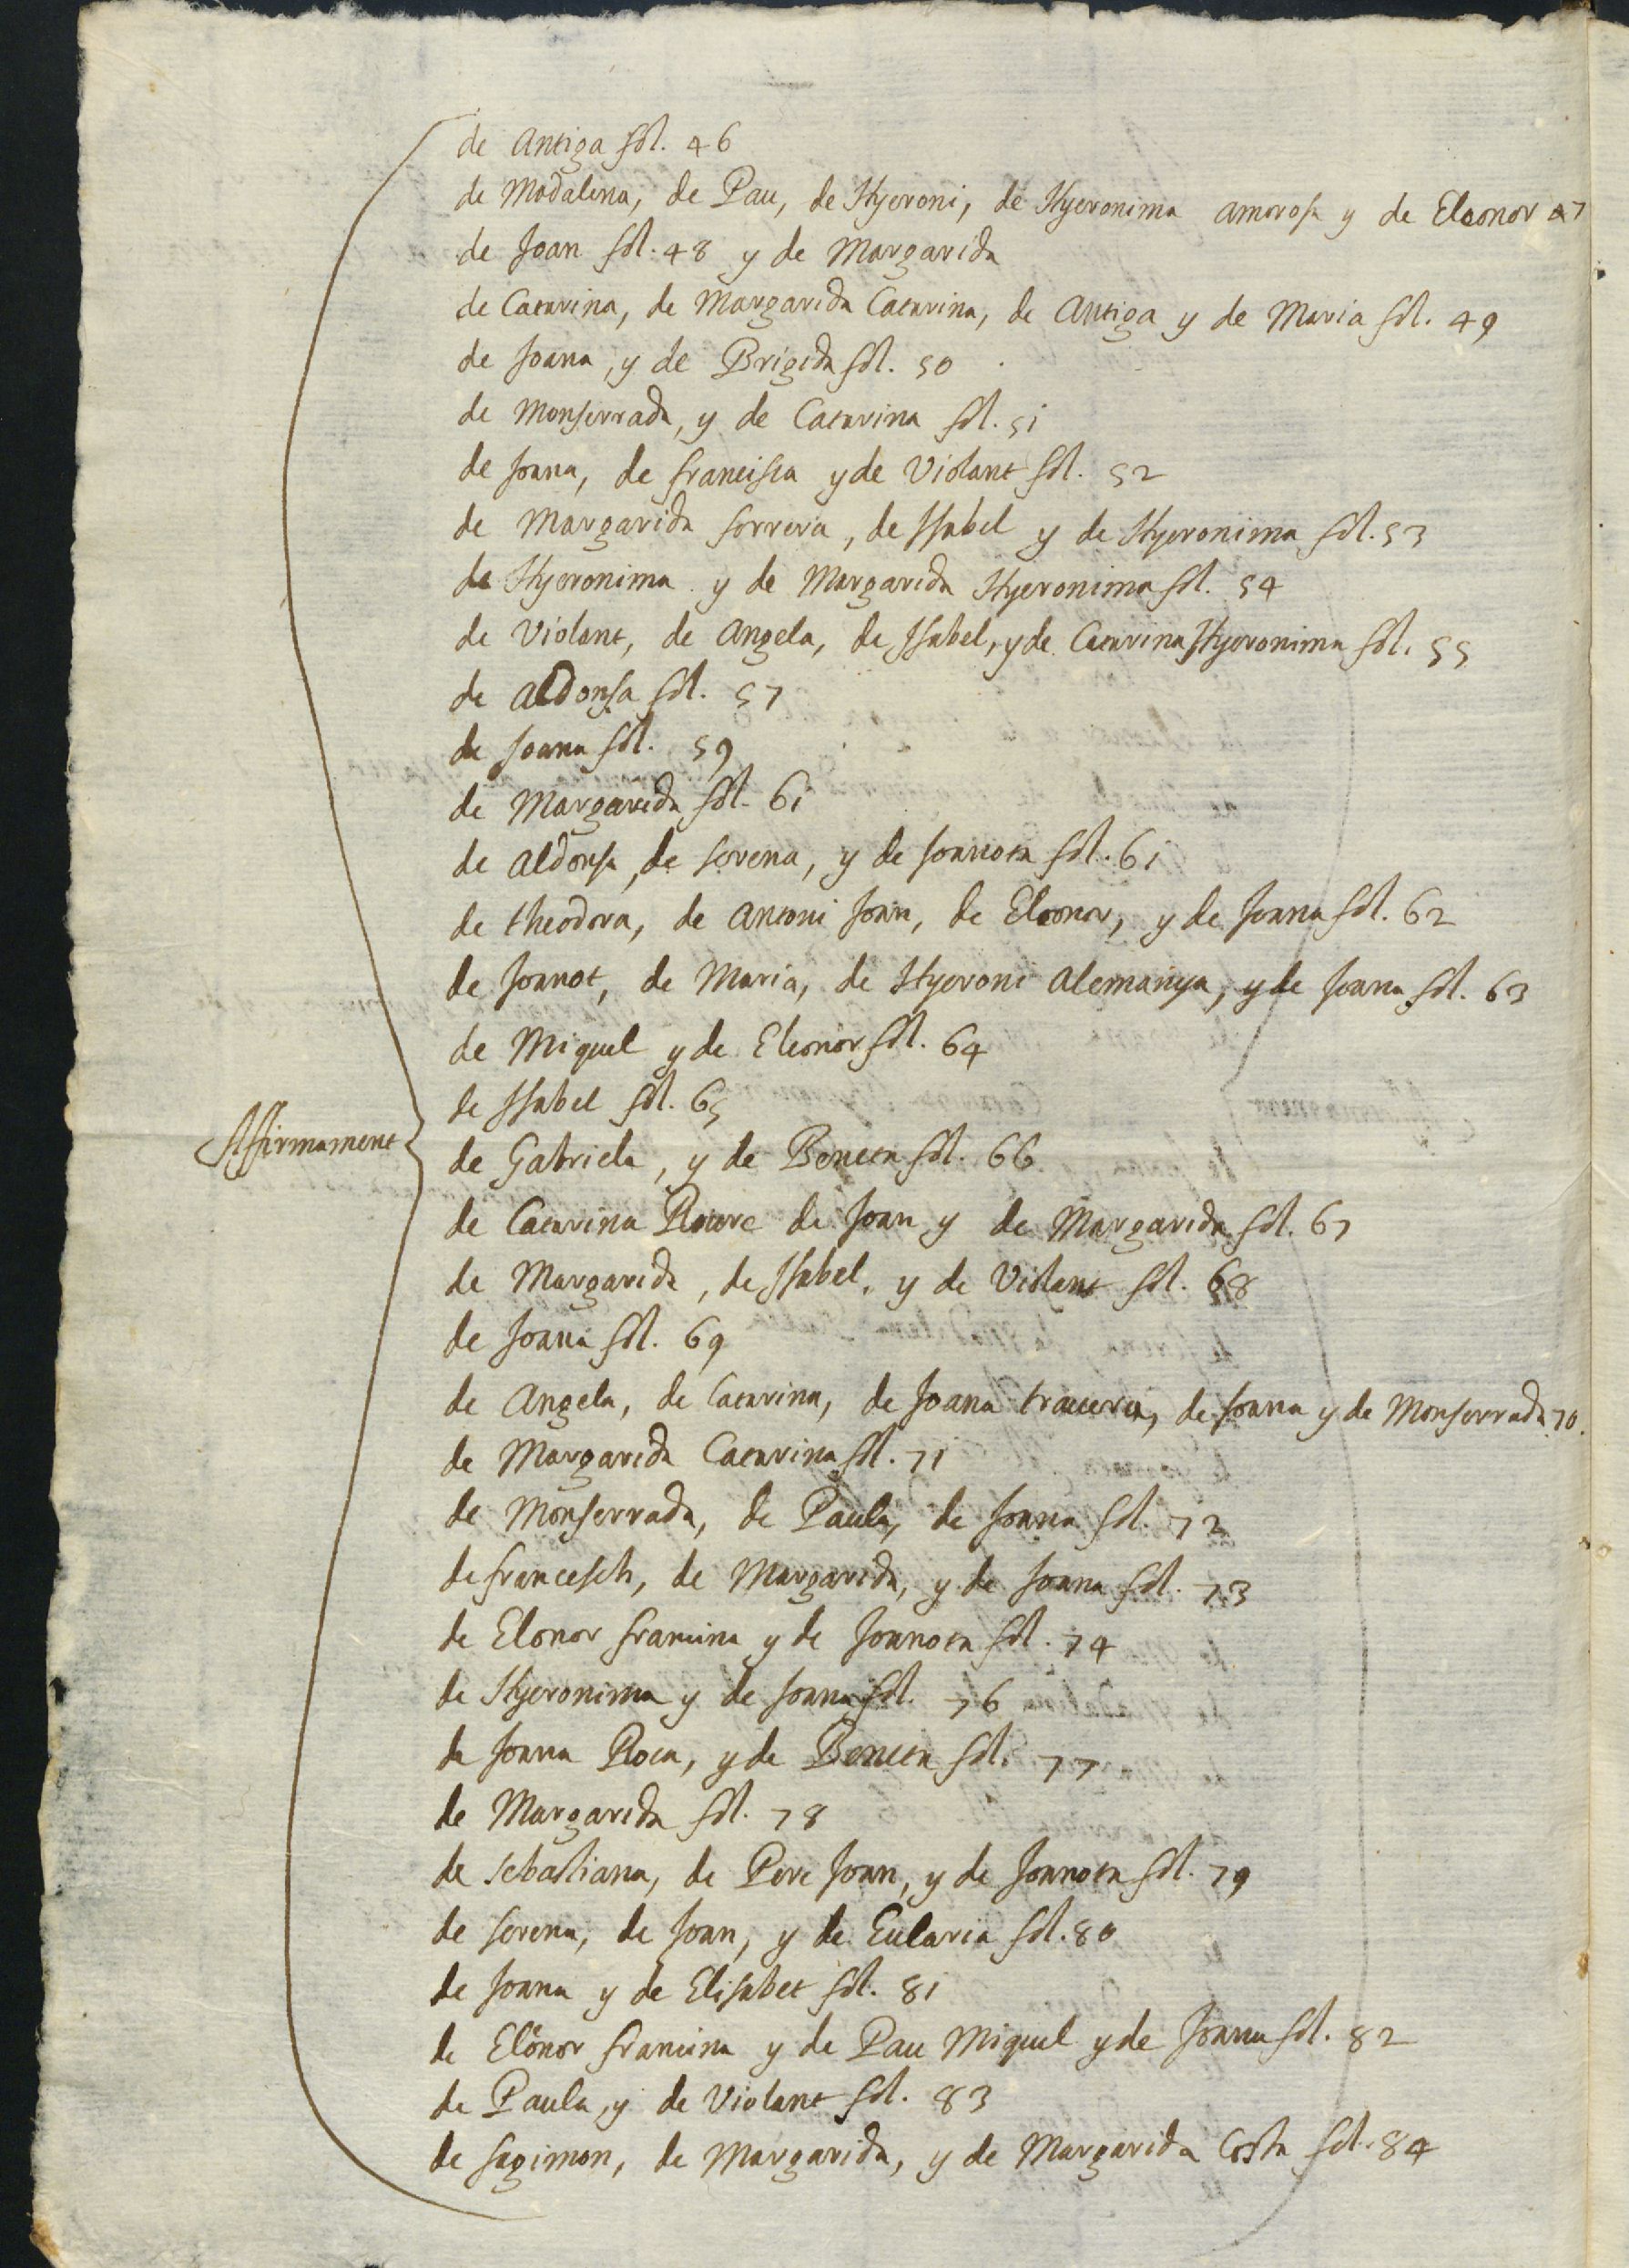 de Antiga fol. 46
de Madalena, de Pau, de Hyeroni, de Hyeronima amorosa y de Eleonor 47
de Joan fol. 48 y de Margarida
de Catarina, de Margarida Catarina, de Antiga y de Maria fol. 49
de Joana, y de Brigida fol. 50
de Monserrada, y de Catarina fol. 51
de Joana, de francisca y de Violant fol. 52
de Margarida ferrera, de Isabel y de Hyeronima fol. 53
de Hyeronima y de Margarida Hyeronima fol. 54
de Violant, de Angela, de Isabel, y de Catarina Hyeronima fol. 55
de Aldonsa fol. 57
de Joana fol. 59
de Margarida fol. 61
de Aldonsa, de serena, y de Joanota fol. 61
de theodora, de Antoni Joan, de Eleonor, y de Joana fol. 62
de Joanot, de Maria, de Hyeroni Alemanya, y de Joana fol. 63
de Miquel y de Eleonor fol. 64
de Isabel fol. 65
Affirmament
de Gabriela, y de Beneta fol. 66
de Catarina Roure de Joan y de Margarida fol. 67
de Margarida, de Isabel, y de Violant fol. 68
de Joana fol. 69
de Angela, de Catarina, de Joana travera, de Joana y de Monserrada 70.
de Margarida Catarina fol. 71
de Monserrada, de Paula, de Joana fol. 72
de francesch, de Margarida, y de Joana fol. 73
de Elonor francina y de Joanota fol. 74
de Hyeronima y de Joana fol. 76
de Joana Roca, y de Beneta fol. 77
de Margarida fol. 78
de sebastiana, de Pere Joan, y de Joanota fol. 79
de serena, de Joan, y de Eularia fol. 80
de Joana y de Elisabet fol. 81
de Elonor francina y de Pau Miquel y de Joana fol. 82
de Paula, y de Violant fol. 83
de sagimon, de Margarida, y de Margarida Costa fol. 84